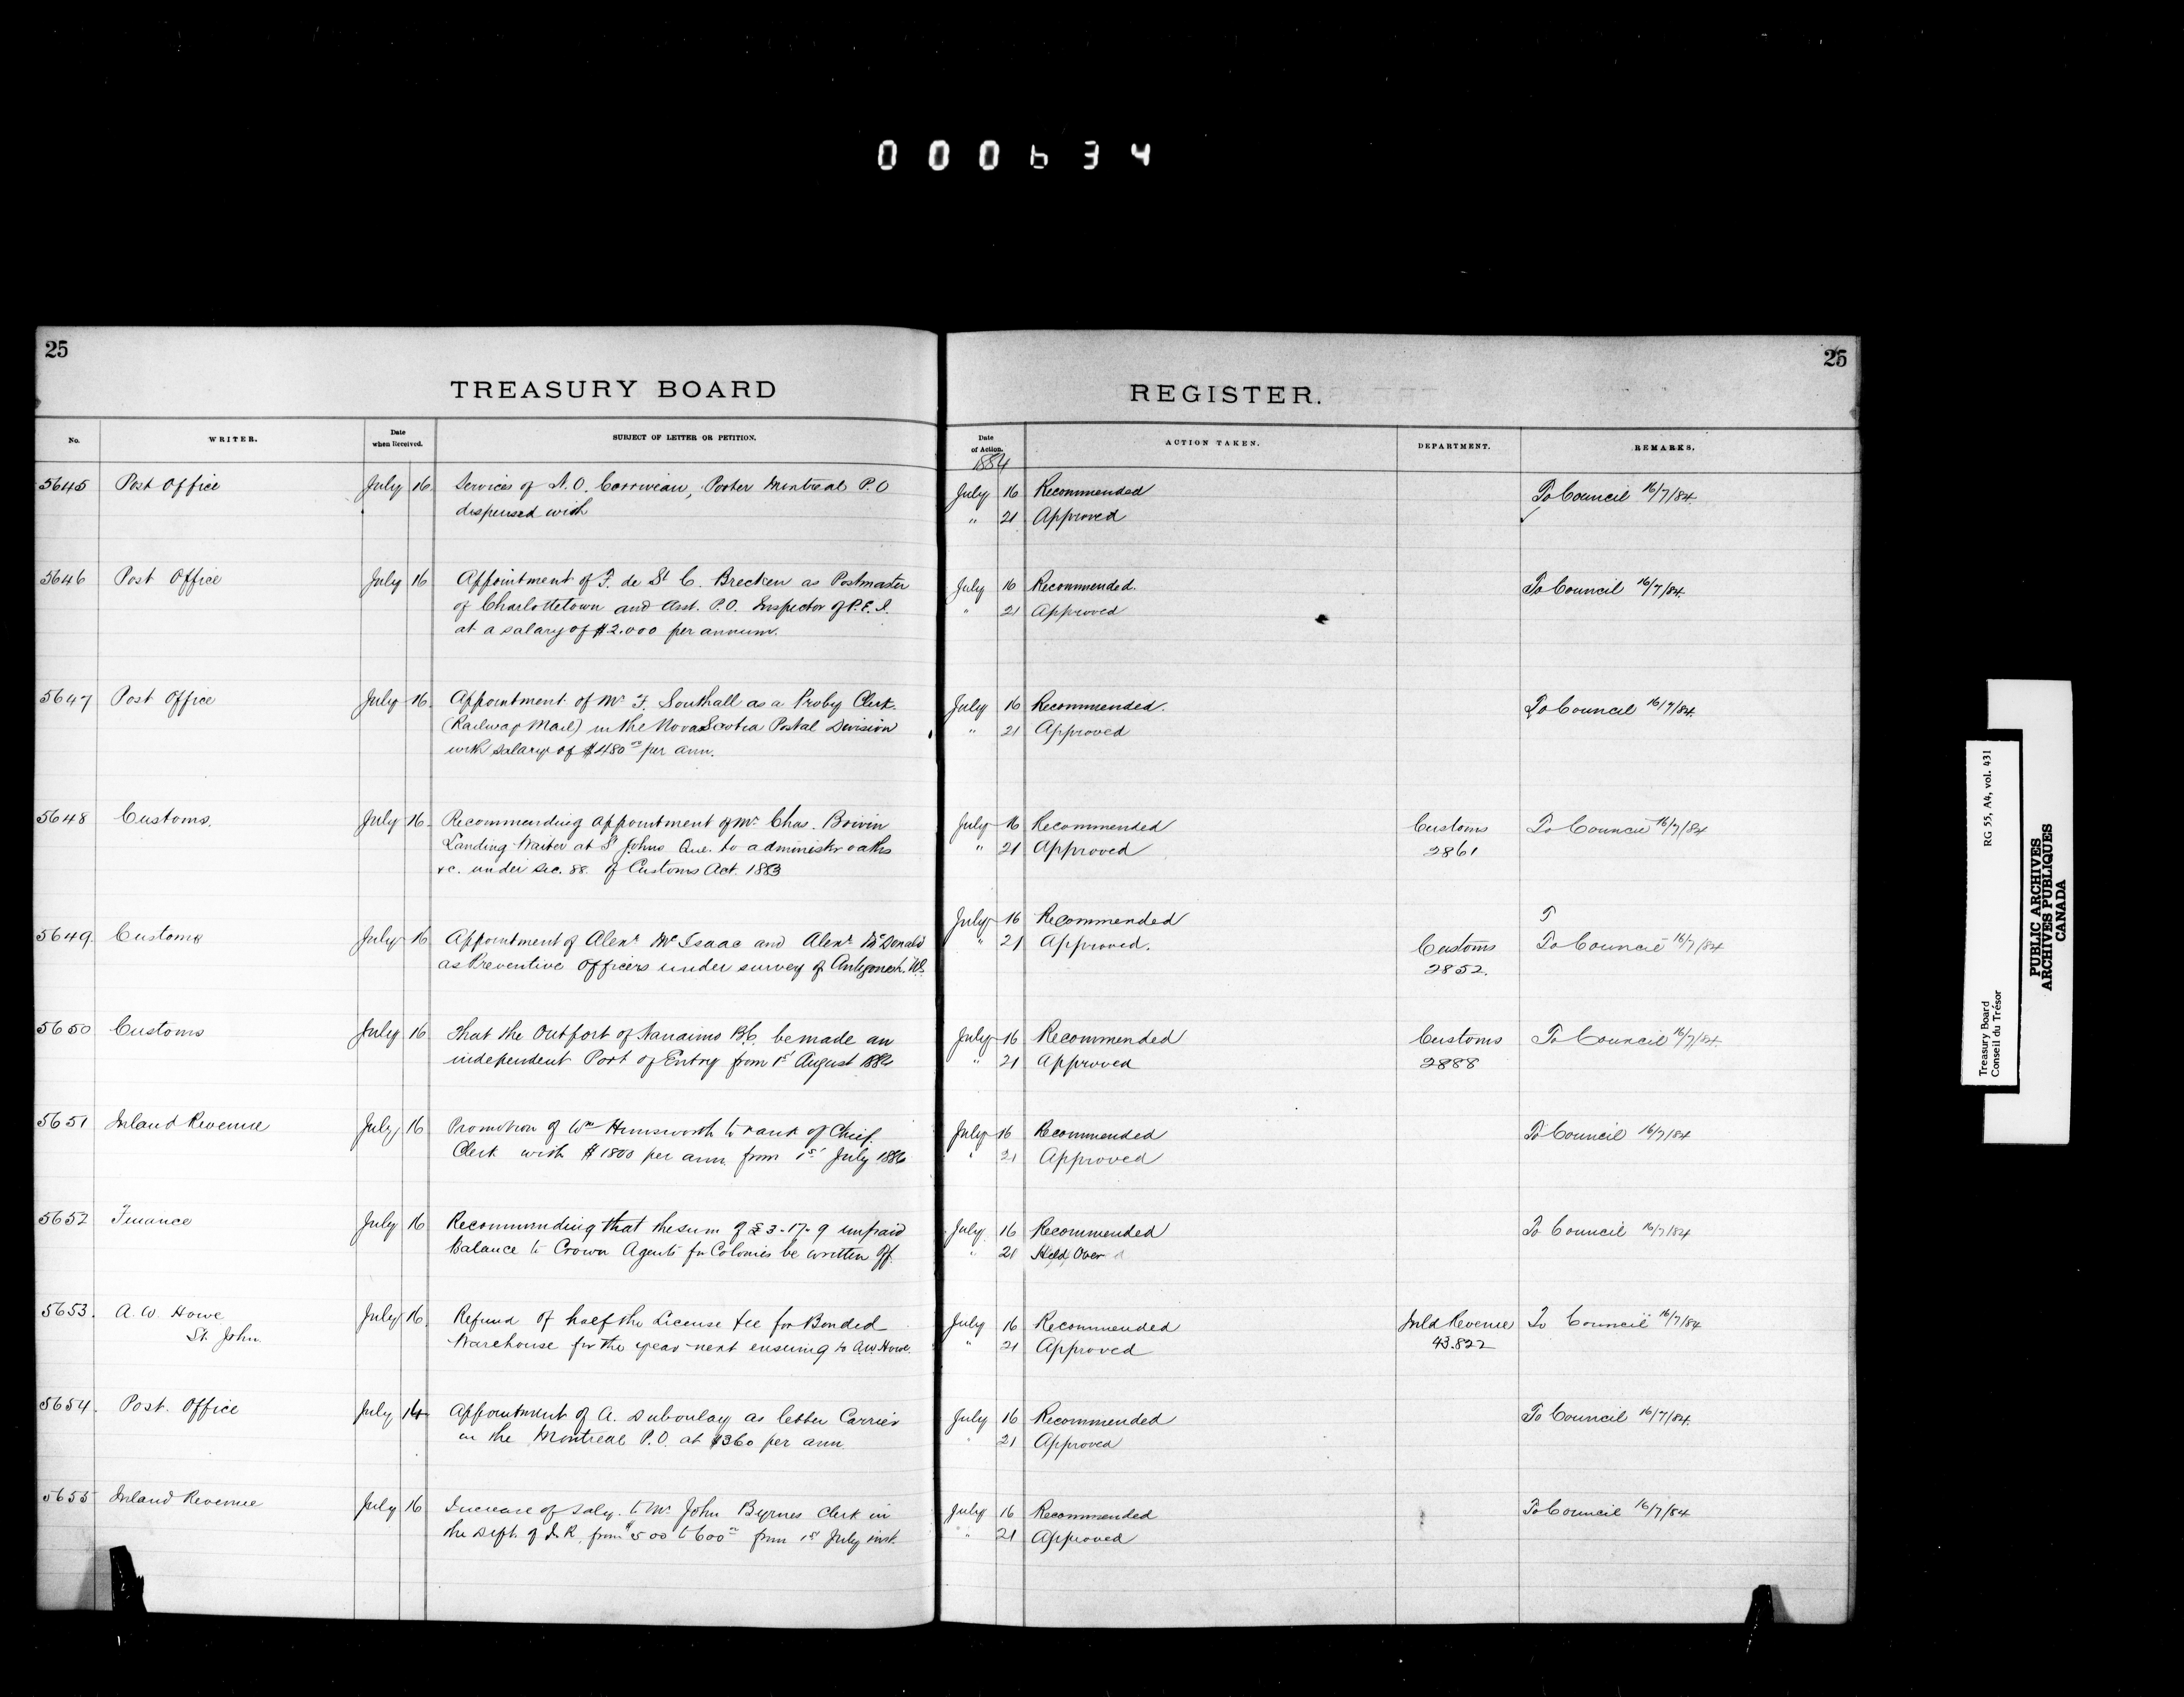 000634
25
25
TREASURY BOARD
REGISTER.
No.
WRITER.
Date
when Received.
SUBJECT OF LETTER OR PETITION.
Date
of Action.
ACTION TAKEN.
DEPARTMENT.
REMARKS.
1884
5645 Post Office July 16 Services of N.O. Corriveau, Porter Montreal P.O July 16 Recommended To Council 16/7/84
dispensed with " 21 Approved
5646 Post Office July 16 Appointment of F. de St C. Brecken as Postmaster July 16 Recommended. To Council 16/7/84
of Charlottetown and Asst. P.O. Inspector of P.E.I. " 21 Approved
at a salary of $2.000 per annum.
5647 Post Office July 16 Appointment of Mr F. Southall as a Proby Clerk. July 16 Recommended. To Council 16/7/84
(Railway Mail) in the Nova Scotia Postal Division " 21 Approved
with salary of $480 00 per ann.
5648 Customs. July 16 Recommending appointment of Mr Chas. Boivin July 16 Recommended Customs To Council 16/7/84
Landing Waiter at St Johns Que. to administer oaths " 21 Approved 2861
&c. under Sec. 88. of Customs Act. 1883
July 16 Recommended T
5649. Customs July 16 Appointment of Alexr McIsaac and Alexr McDonald " 21 Approved. Customs To Council 16/7/84
as Preventive Officers under survey of Antigonish. N.S. 2852.
5650 Customs July 16 That the Outport of Nanaimo B.C. be made an July 16 Recommended Customs To Council 16/7/84
independent Port of Entry from 1st August 1884 " 21 Approved 2888
5651 Inland Revenue July 16 Promotion of Wm Himsworth to rank of Chief. July 16 Recommended To Council 16/7/84
Clerk with $1800 per ann. from 1st July 1884 " 21 Approved
5652 Finance July 16 Recommending that the sum of £3-17-9 unpaid July 16 Recommended To Council 16/7/84
balance to Crown Agents for Colonies be written off. " 21 Held Over
5653. A. W. Howe July 16 Refund of half the License fee for Bonded July 16 Recommended Inld Revenue To Council 16/7/84
St. John. Warehouse for the year next ensuing to A.W. Howe. " 21 Approved 43.822
5654. Post. Office July 14 Appointment of A. Duboulay as letter Carrier July 16 Recommended To Council 16/7/84
in the Montreal P.O. at $360 per ann. " 21 Approved
5655 Inland Revenue July 16 Increase of Saly. to Mr John Byrnes Clerk in July 16 Recommended To Council 16/7/84
the Dept. of I.R. from $500 to 600 00 from 1st July inst. " 21 Approved
Treasury Board RG 55, A4, vol. 431
Conseil du Trésor
PUBLIC ARCHIVES
ARCHIVES PUBLIQUES
CANADA